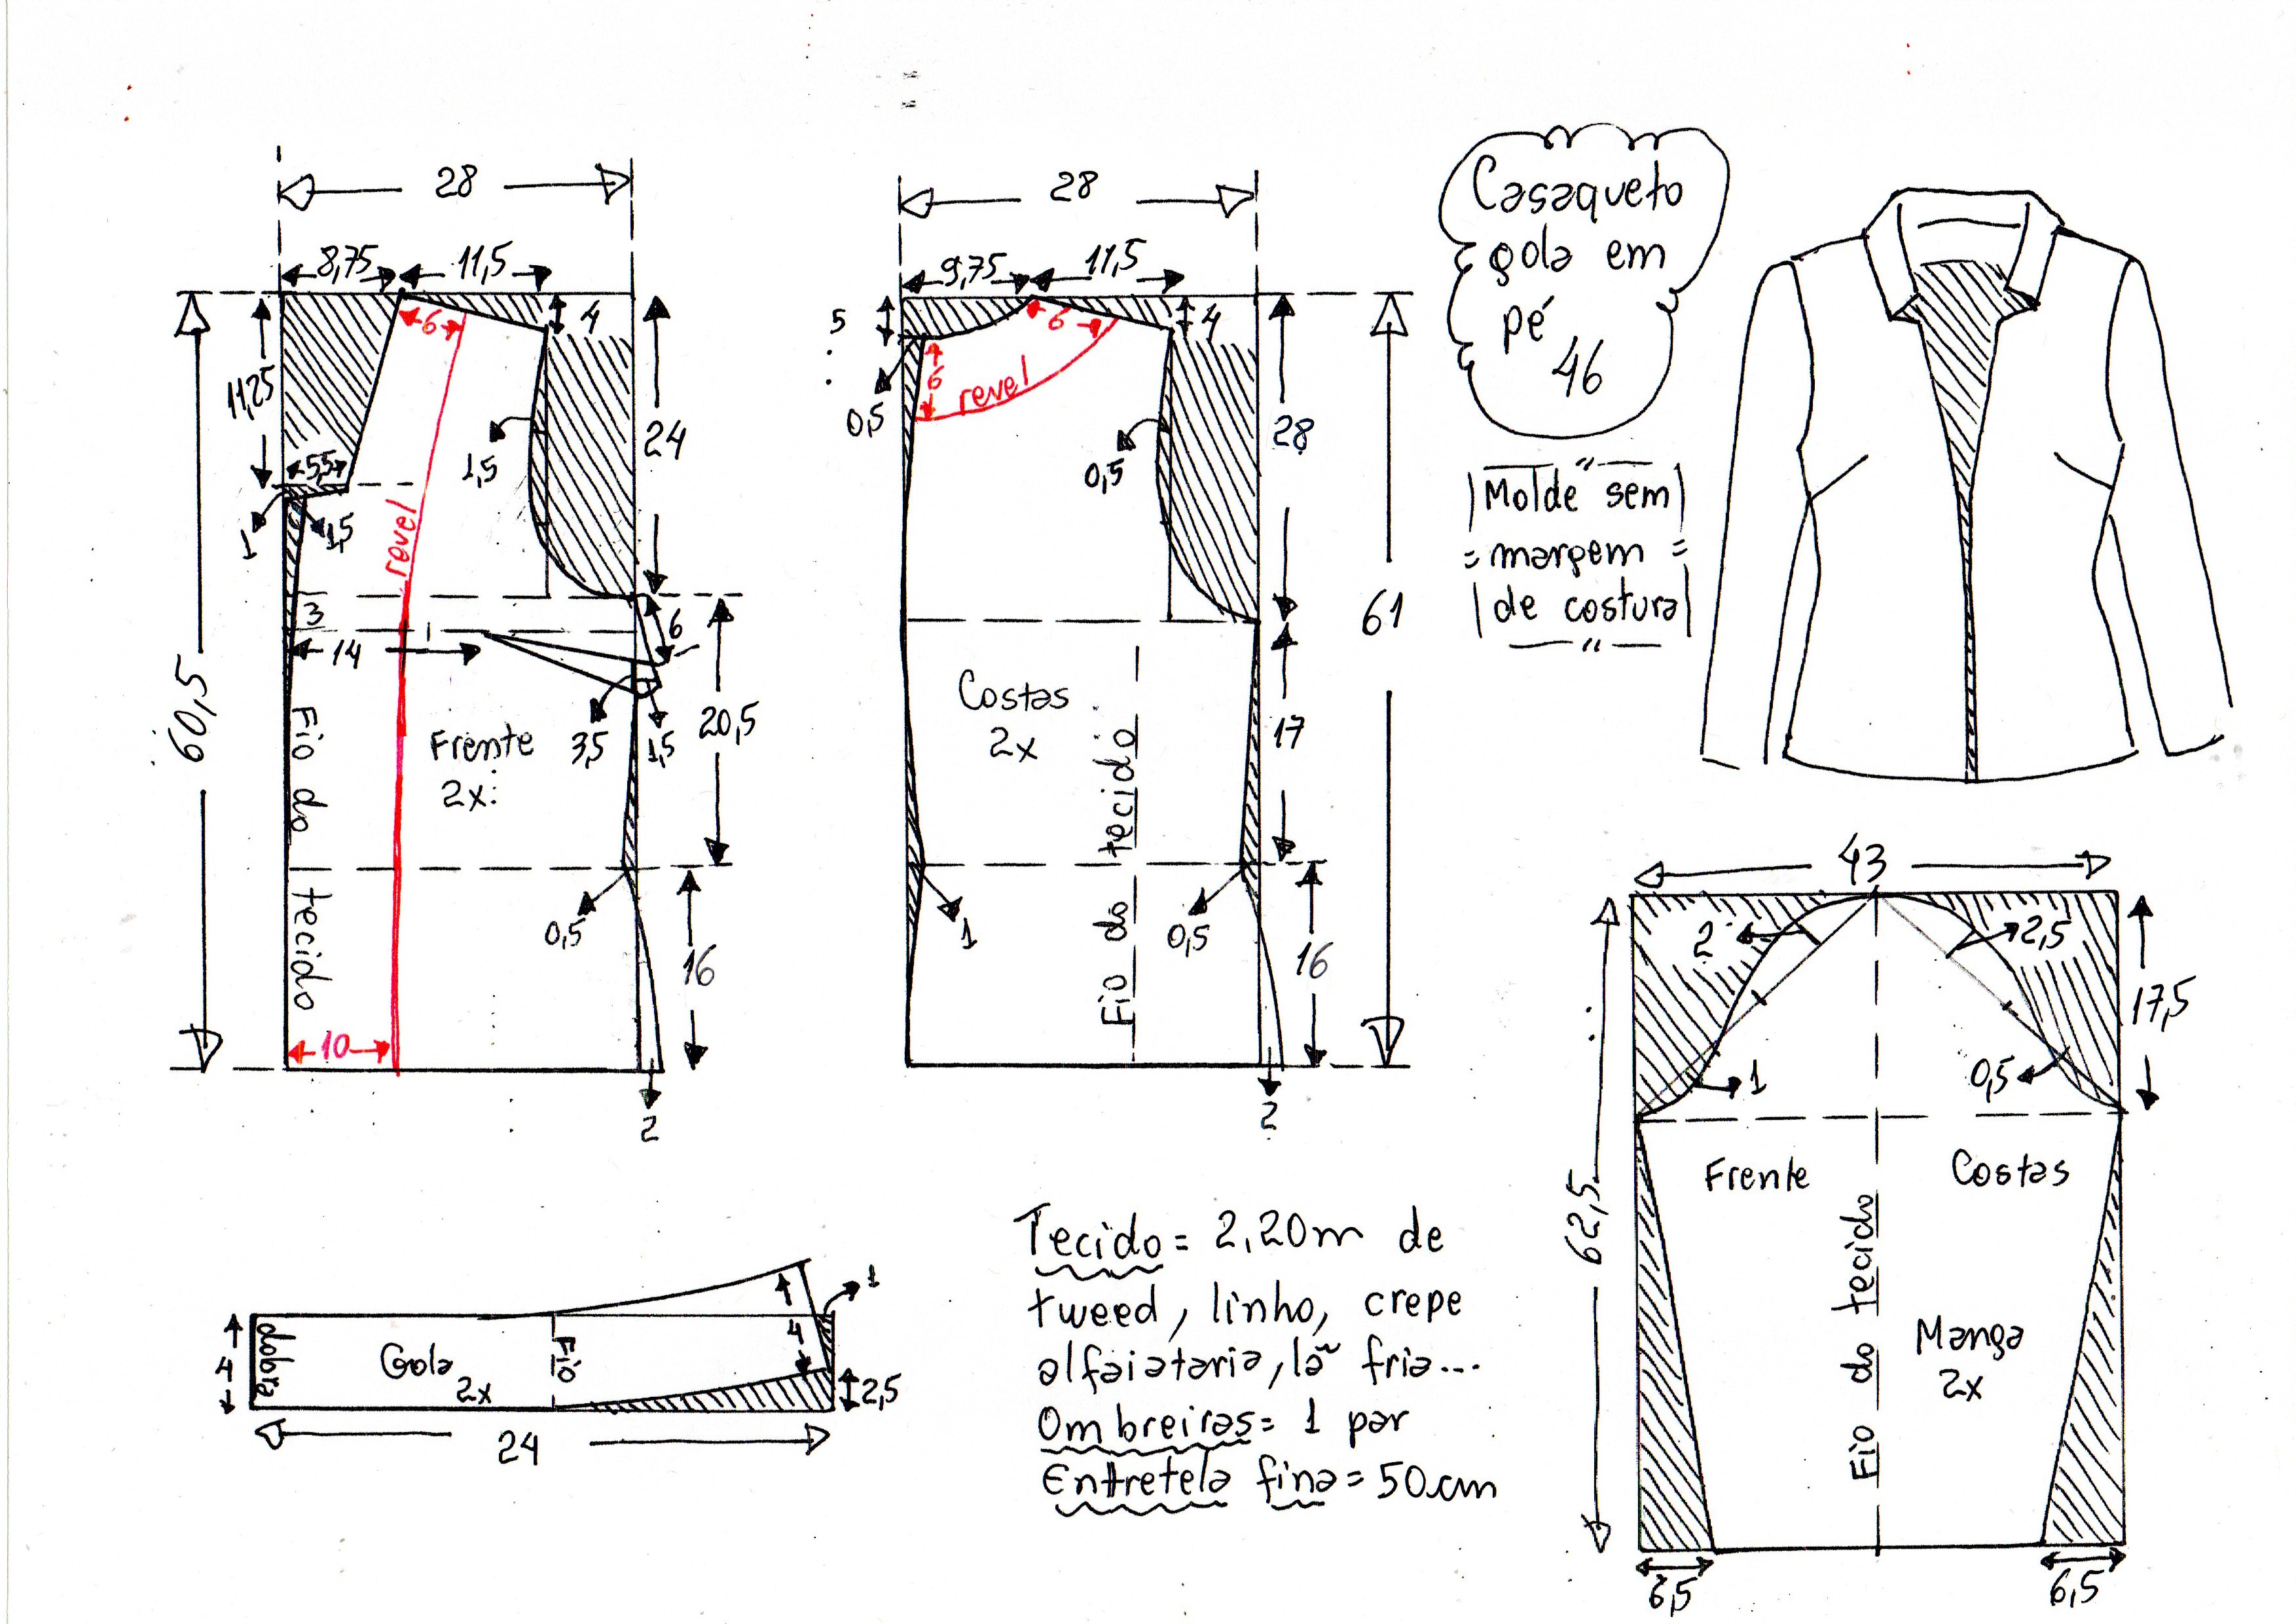 28
8,75
11,5
4
6
11,25
24
5,5
1,5
1
1,5
revel
3
14
6
60,5
Fio do tecido
Frente
2x
3,5
1,5
20,5
0,5
16
10
2
28
9,75
11,5
5
4
6
6
revel
0,5
0,5
28
61
Costas
2x
Fio do tecido
17
1
0,5
16
2
Casaqueto
gola em
pé
46
Molde sem
margem
de costura
43
2
2,5
17,5
1
0,5
62,5
Frente
Costas
Fio do tecido
Manga
2x
6,5
6,5
4
dobra
Gola
2x
Fio
4
1
2,5
24
Tecido = 2,20m de
tweed, linho, crepe
alfaiataria, lã fria...
Ombreiras = 1 par
Entretela fina = 50cm